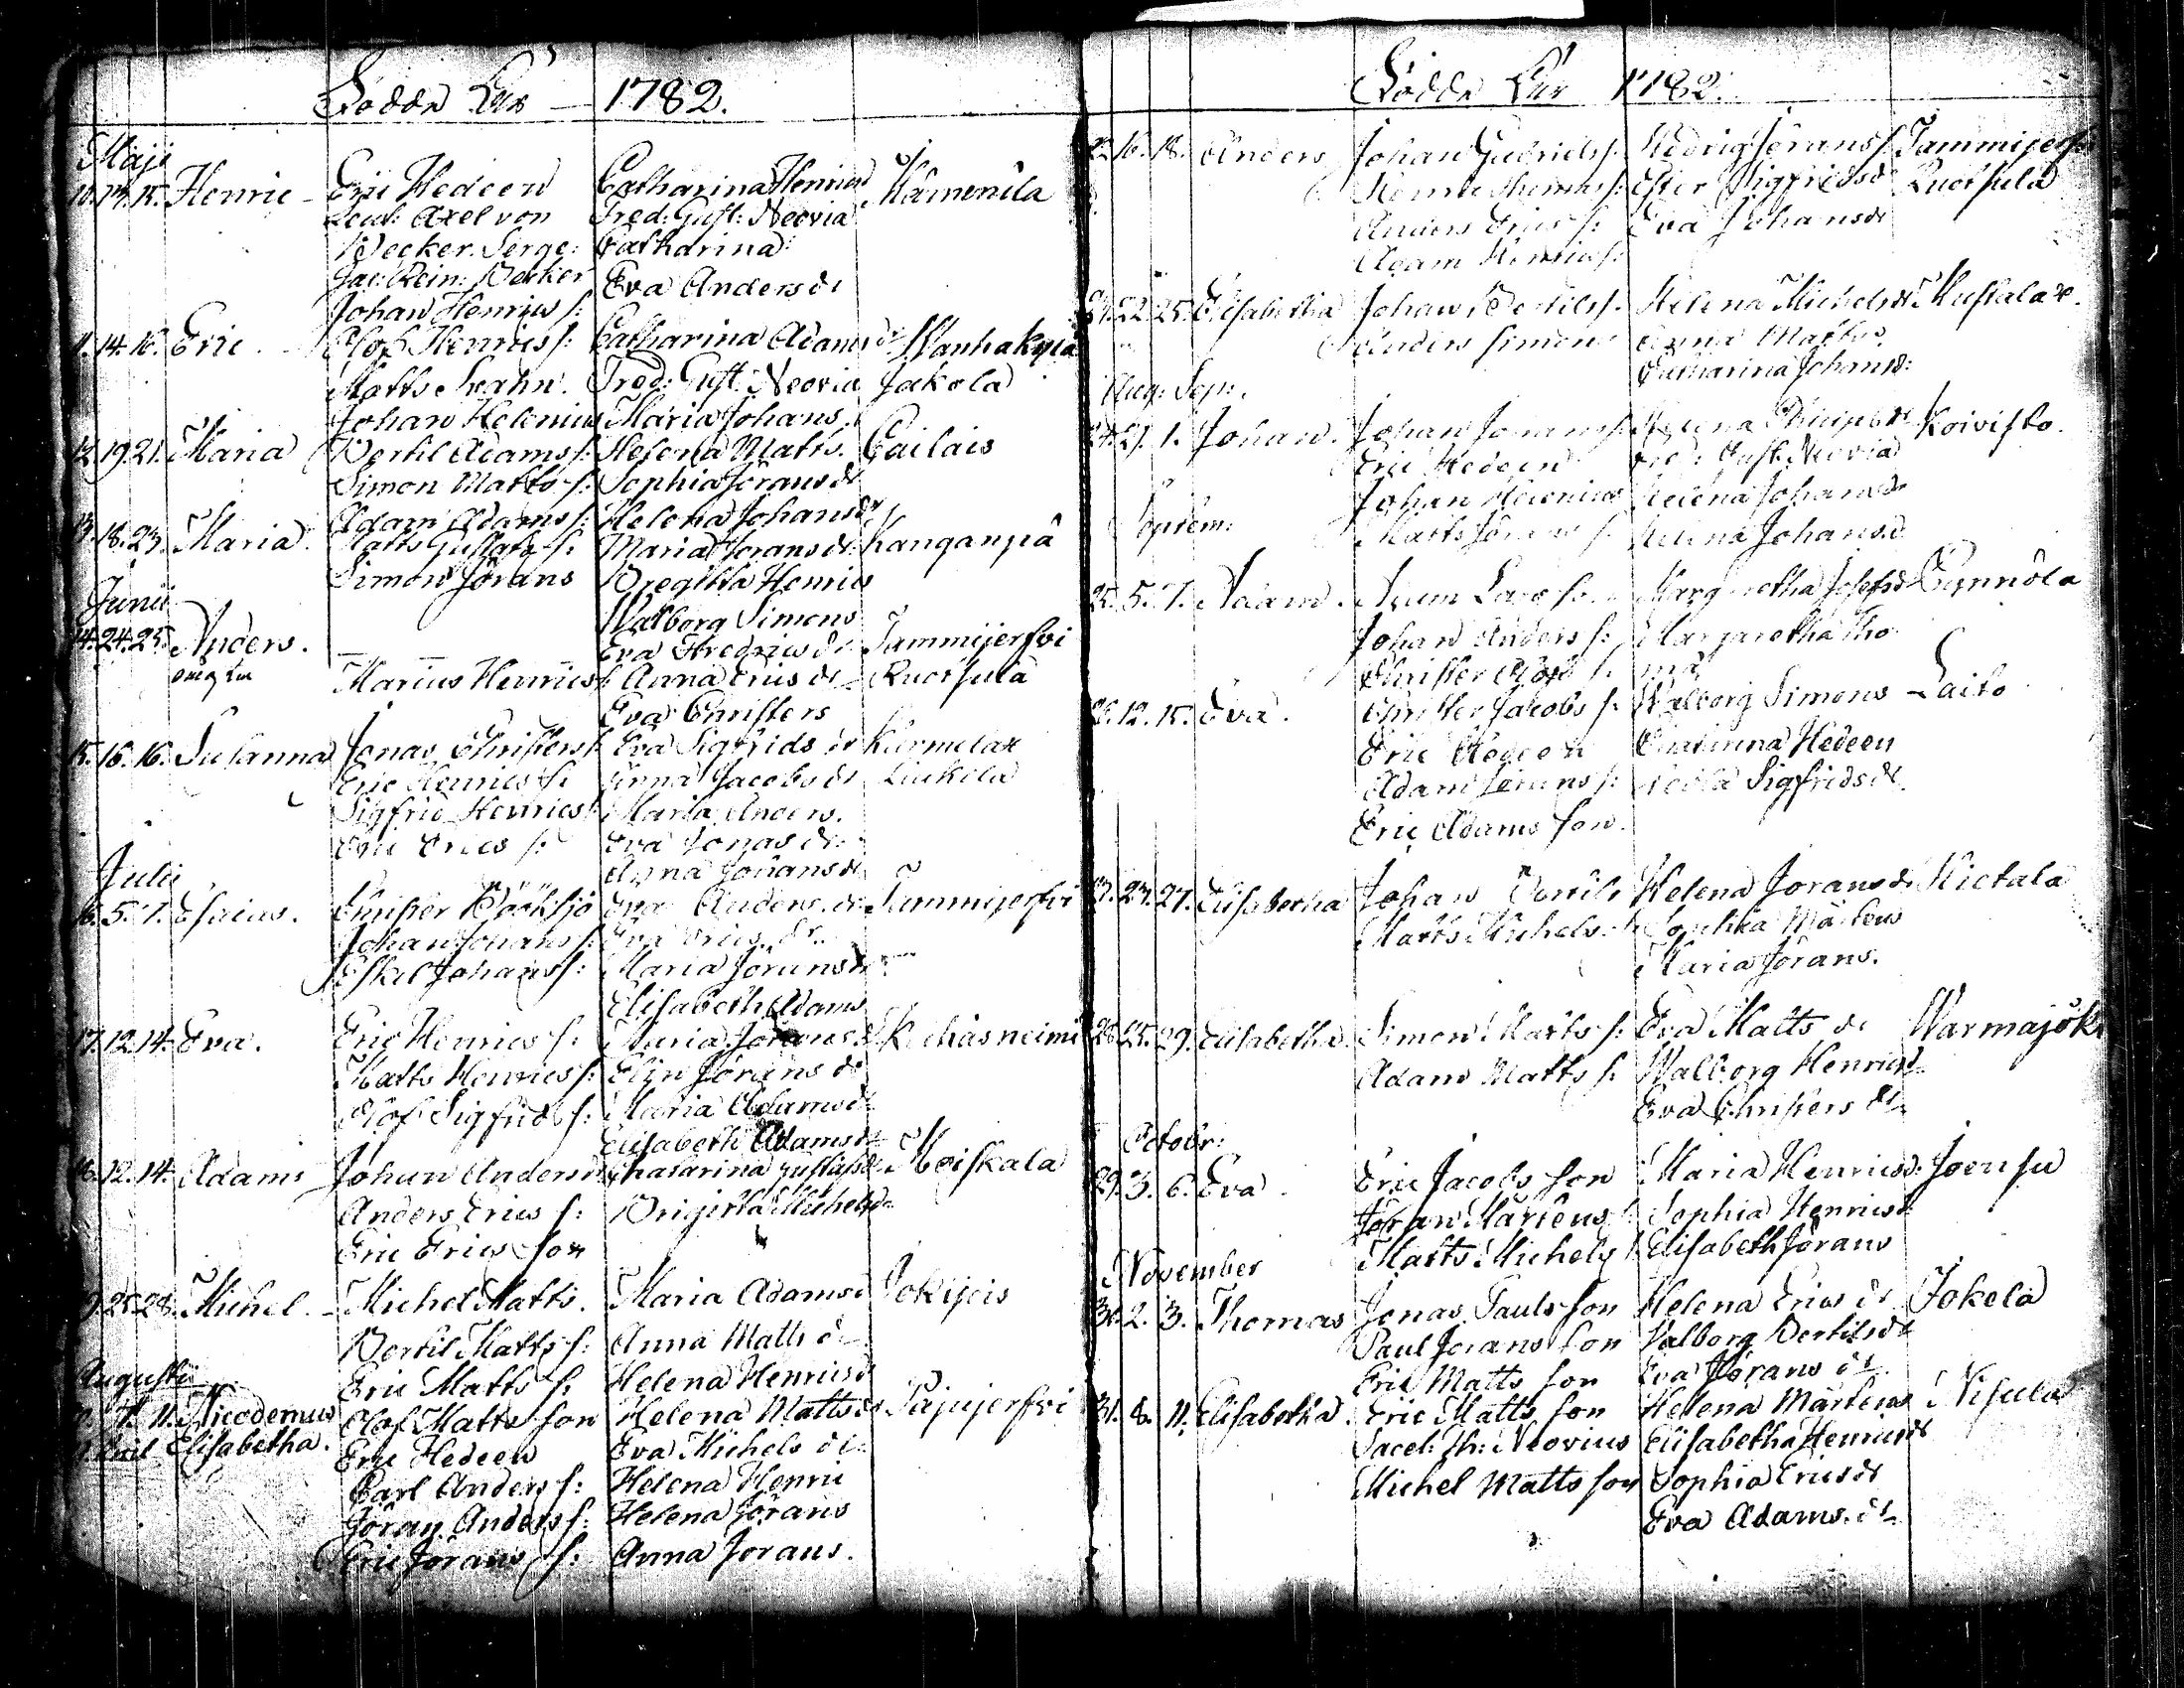 Födde Åhr 1782.
Maji
10. 14. 15. Henric Eric Hedeen Catharina Henrics Kämenilä
Axel von Fred: Gust: Neovia
Becker. Serge: Catharina
Jac: Rein: Becker Eva Anders dr
Johan Henrics s:
11. 14. 16. Eric Olof Henrics s: Catharina Adams dr Wanhakylä
Matts Svahn. Fred: Gust: Neovia Jakola
Johan Helenius Maria Johans
12. 19. 21. Maria Bertil Adams s: Helena Matts. Cailais
Simon Matts s: Sophia Jörans dr
Adam Adams s: Helena Johans dr
13. 18. 23. Maria. Matts Gustafs s: Maria Jörans dr Kanganpä
Simon Jörans Bregitta Henrics
Junii
Walborg Simons
14. 24. 25. Anders. Eva Fredrics dr Tammijerfvi
oägta Marcus Henrics s: Anna Erics dr Ruotsula
Eva Christers
15. 16. 16. Susanna Jonas Christers s: Eva Sigfrids dr Kurmelax
Eric Henrics s: Anna Jacobs dr Liukila
Sigfrid Henrics s: Maria Anders.
Eric Erics s: Eva Jonas dr
Anna Johans dr
Julii
16. 5. 7. Esaias. Christer Bööksjö Eva Anders dr Tammijerfvi
Johan Johans s: Eva Erics dr
Eskel Johans s: Maria Jörans dr
Elisabeth Adams
17. 12. 14. Eva. Eric Henrics s: Maria Jörans dr
Matts Henrics s: Elin Jörans dr
Olof Sigfrids s: Maria Adams dr
Elisabeth Adams dr
18. 12. 14. Adam Johan Anders Chatarina Gustafs dr Moiskala
Anders Erics s: Brigitta Michels dr
Eric Erics son
19. 25. 28. Michel. Michel Matts. Maria Adams d Jokipois
Bertil Matts s: Anna Matts dr
Augustii
Eric Matts s: Helena Henrics d
7. 11. Nicodemus Olof Matts son Helena Matts dr Pajujerfvi
Elisabetha. Eric Hedeen Eva Michels dr
Carl Anders s: Helena Henric
Jöran Anders s: Helena Jörans
Eric Jörans s: Anna Jörans.
Födde Åhr 1782.
22. 16. 18. Anders Johan Gabriels s. Hedvig Jörans Tammijerfvi
Thomas s: Ester Sigfrids d Ruotsula
Anders Erics s: Eva Johans dr
Adam Henrics s:
22. 25. Elisabetha Johan Bertils s. Helena Michels dr Kustala
Anders Simons Anna Matts
Catharina Johans d:
Aug: Sep:
27. 1. Johan. Johan Jörans s: Helena Koivisto.
Eric Hedeen Fred: Gust: Neovia
Johan Helenius Helena Johans dr
Septem: Matts Jörans s: Helena Johans d
25. 5. 7. Adam. Lars s. Margaretha Josefs d Gunnöla
Johan Anders s: Margaretha Tho
Christer s: mä
26. 12. 15. Eva. Christer Jacobs s: Walborg Simons Laito
Eric Hedeen Chatarina Hedeen
Adam Jörans s: Sigfrids dr
Eric Adams son.
27. 23. 27. Elisabetha Johan Bertils Helena Jörans dr Hietala
Matts Michels s: Sophia Mårtens
Maria Jörans.
28. 25. 29. Elisabetha. Simon Matts s: Eva Matts dr Warmajöki
Adam Matts s: Walborg Henrics d
Eva Christers dr
Octobr:
29. 3. 6. Eva. Eric Jacobs son Maria Henrics d: Joensu
Jöran Mårtens s: Sophia Henrics d:
Matts Michels s: Elisabeth Jörans
November
30. 2. 3. Thomas Jonas Pauls son Helena Erics dr Jokela
Paul Jörans son Walborg Bertils dr
Eric Matts son Eva Jörans dr
31. 8. 11. Elisabetha. Eric Matts son Helena Mårtens Nisula
Sacel: Th: Neovius Elisabetha Henrics dr
Michel Matts son Sophia Erics dr
Eva Adams. dr